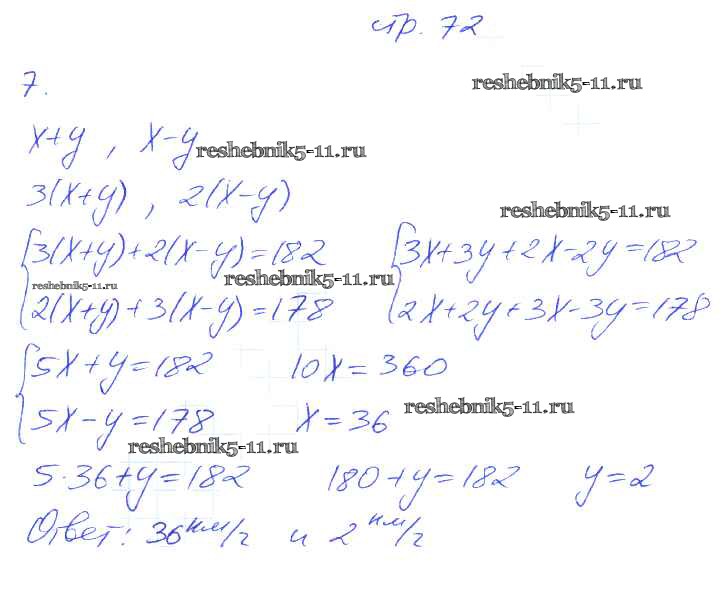 стр. 72
7.
reshebnik5-11.ru
x+y , x-y reshebnik5-11.ru
3(x+y) , 2(x-y)
reshebnik5-11.ru
{3(x+y)+2(x-y)=182 {3x+3y+2x-2y=182
reshebnik5-11.ru reshebnik5-11.ru
2(x+y)+3(x-y)=178 2x+2y+3x-3y=178
{5x+y=182 10x=360
5x-y=178 x=36 reshebnik5-11.ru
reshebnik5-11.ru
5·36+y=182 180+y=182 y=2
Ответ: 36 км/г и 2 км/г